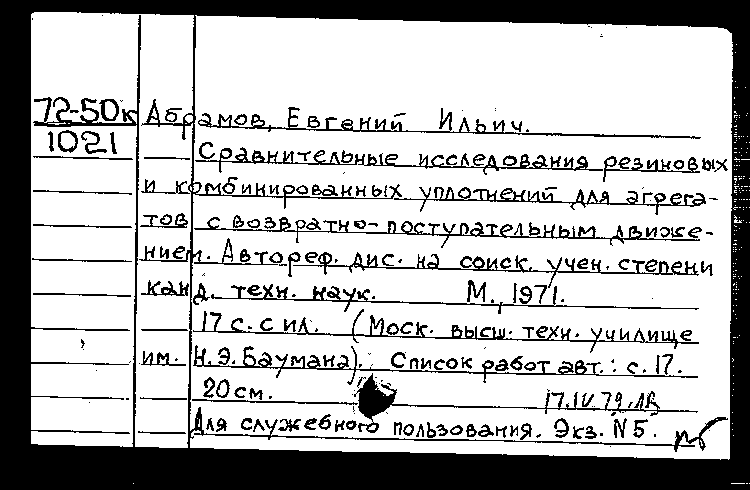 72-50к Абрамов, Евгений Ильич.
1021
Сравнительные исследования резиновых
и комбинированных уплотнений для агрега-
тов с возвратно-поступательным движе-
нием. Автореф. дис. на соиск. учен. степени
канд. техн. наук. М., 1971.
17 с. с ил. (Моск. высш. техн. училище
им. Н.Э. Баумана). Список работ авт.: с. 17.
20 см. 17.IV.79.
Для служебного пользования. Экз. N 5.